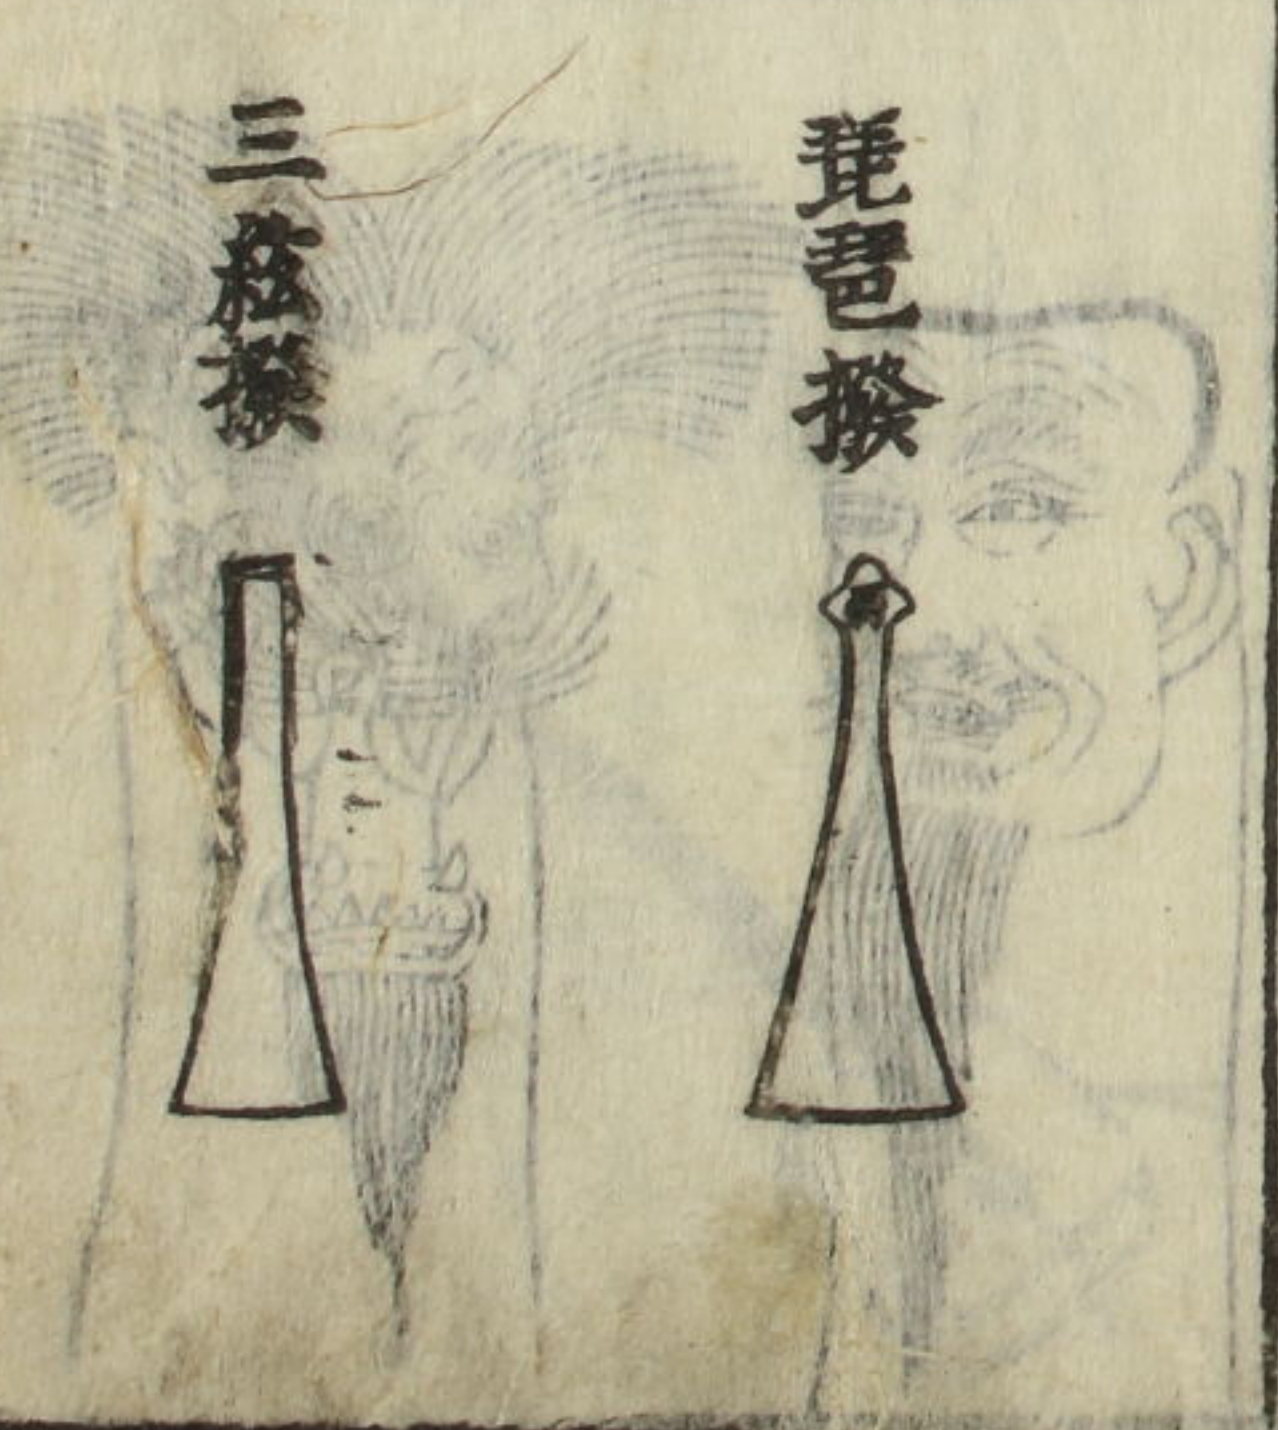 琵琶撥
三絃撥